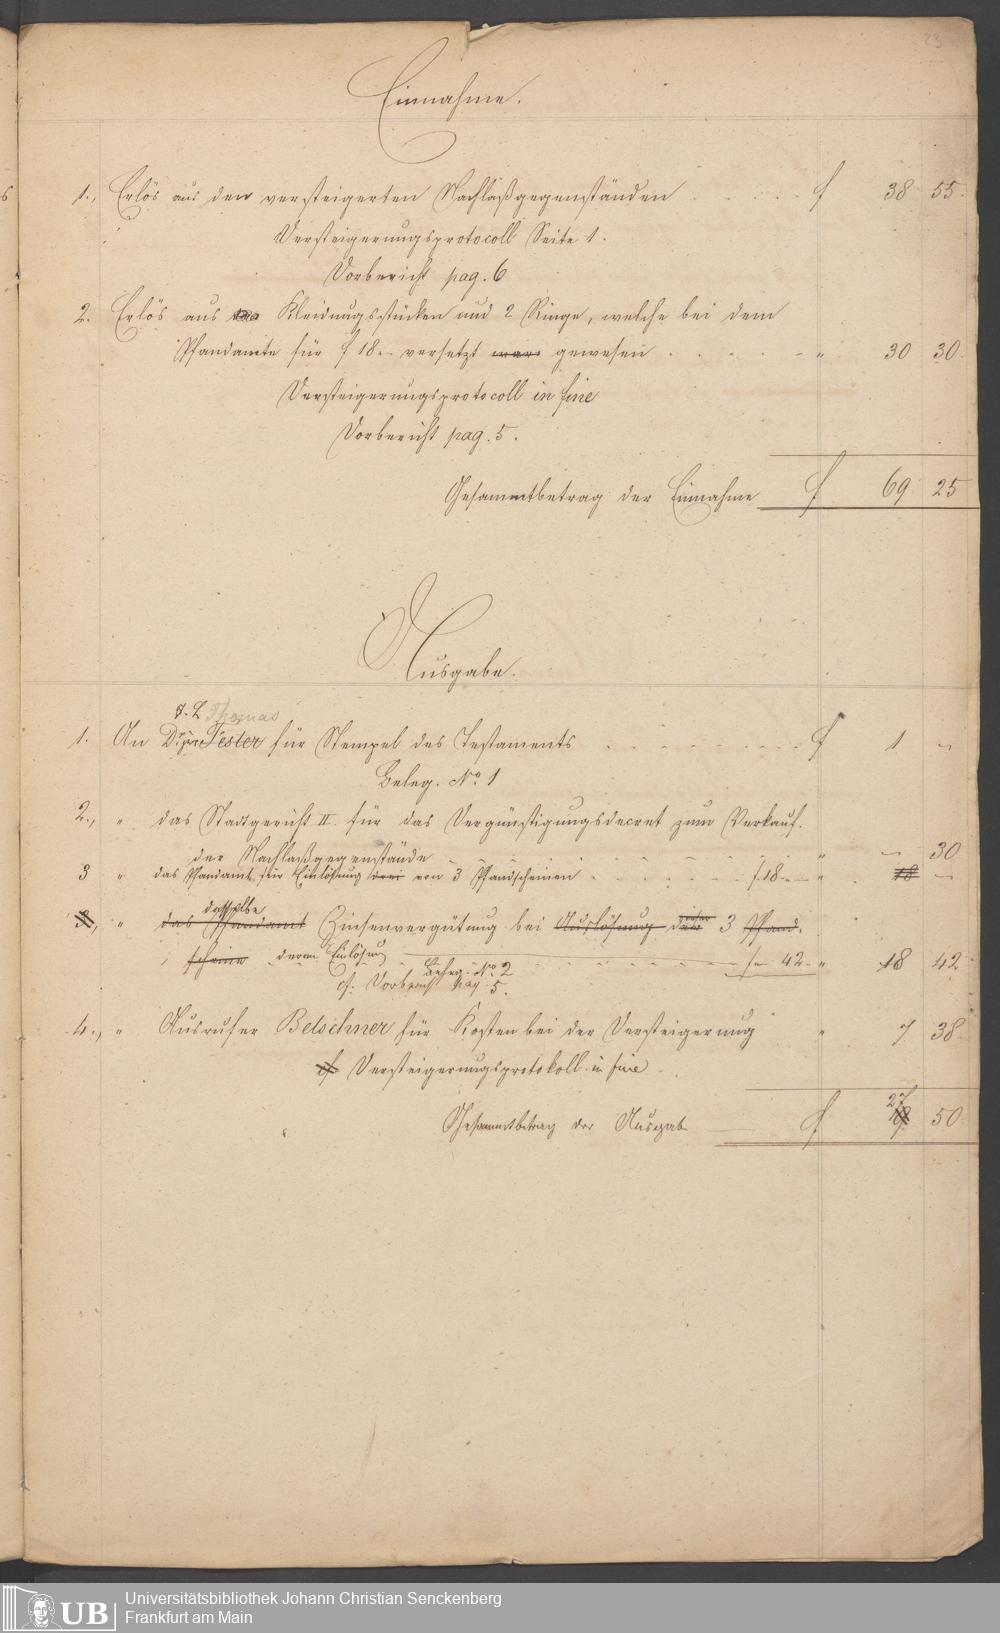 23
Einnahme.
1., Erlös aus den versteigerten Nachlaßgegenständen . . . . . f 38 55.
Versteigerungsprotocoll Seite 1.
Vorbericht pag. 6
2. Erlös aus Kleidungsstücken und 2 Ringe, welche bei dem
Pfandamte für f 18.- versetzt gewesen . . . . . " 30 30.
Versteigerungsprotocoll in fine
Vorbericht pag. 5.
Gesammtbetrag der Einnahme f 69 25
Ausgabe.
Thomas
1. An Dr. jur. Tester für Stempel des Testaments . . . . . . . f 1 -
Beleg. No 1
2., " das Stadtgericht II. für das Vergünstigungsdecret zum Verkauf.
der Nachlaßgegenstände . . . . . . . " - 30
3 " das Pfandamt für Einlösung drei von 3 Pfandscheinen . . . . . f. 18.- " 18 -
dasselbe
3., " das Pfandamt Zinsenvergütung bei Auslösung dieser 3 Pfand-
scheine deren Einlösung . . . . . f - 42.- " 18 42
Beleg. No 2
cf. Vorbericht pag 5.
4., " Ausrufer Belschner für Kosten bei der Versteigerung " 7. 38.
cf Versteigerungsprotokoll in fine
27
Gesammtbetrag der Ausgabe f 50
UB
Universitätsbibliothek Johann Christian Senckenberg
Frankfurt am Main